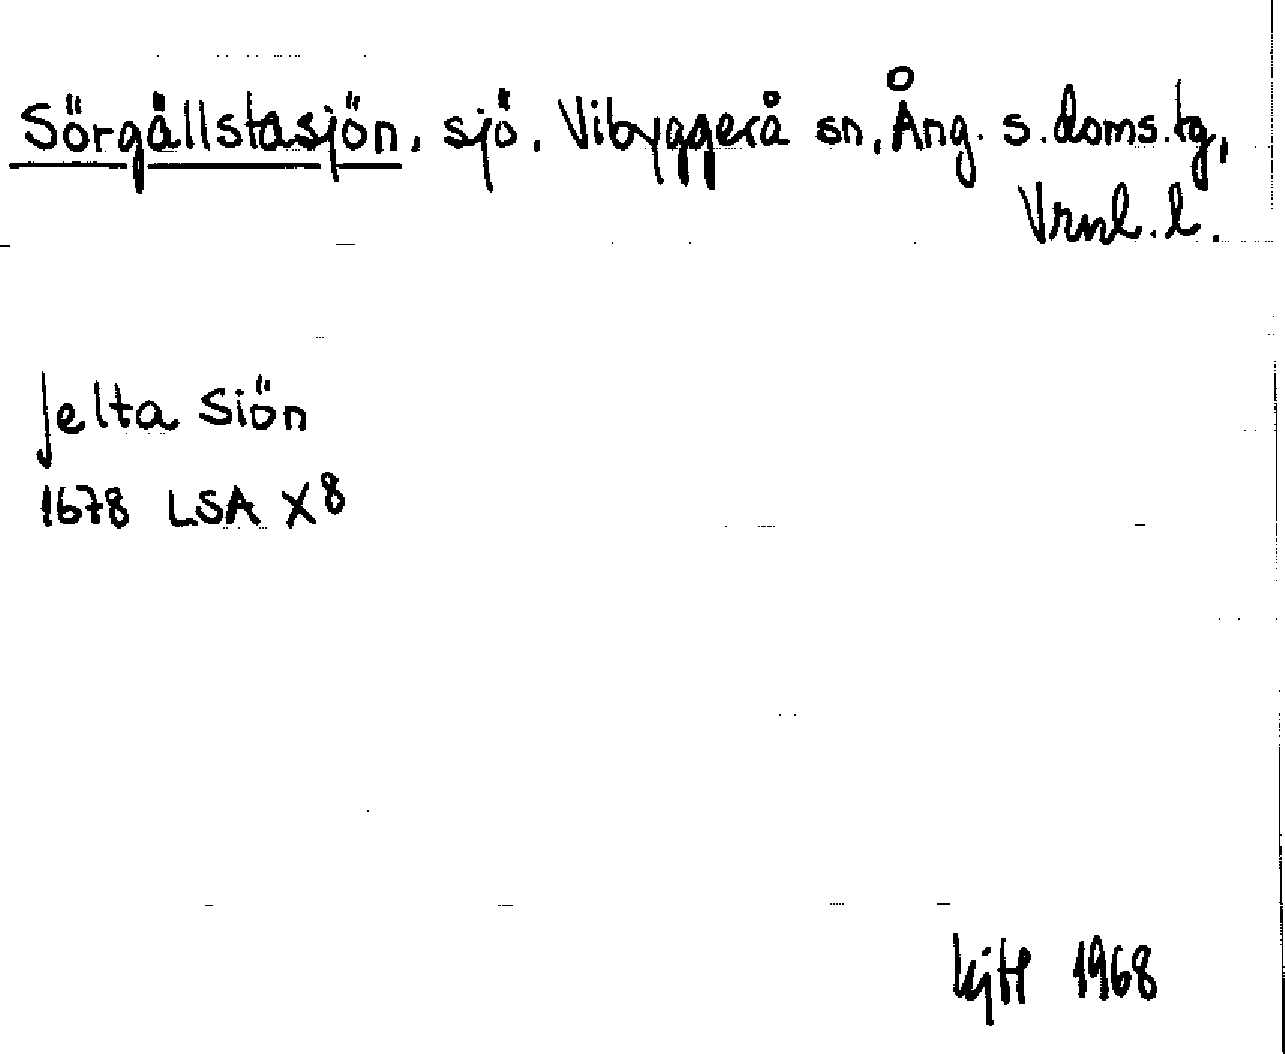 Sörgällstasjön, sjö. Vibyggerå sn, Ång. s. doms. tg,
Vrnl. l.
Jelta Siön
1678 LSA X8
1968